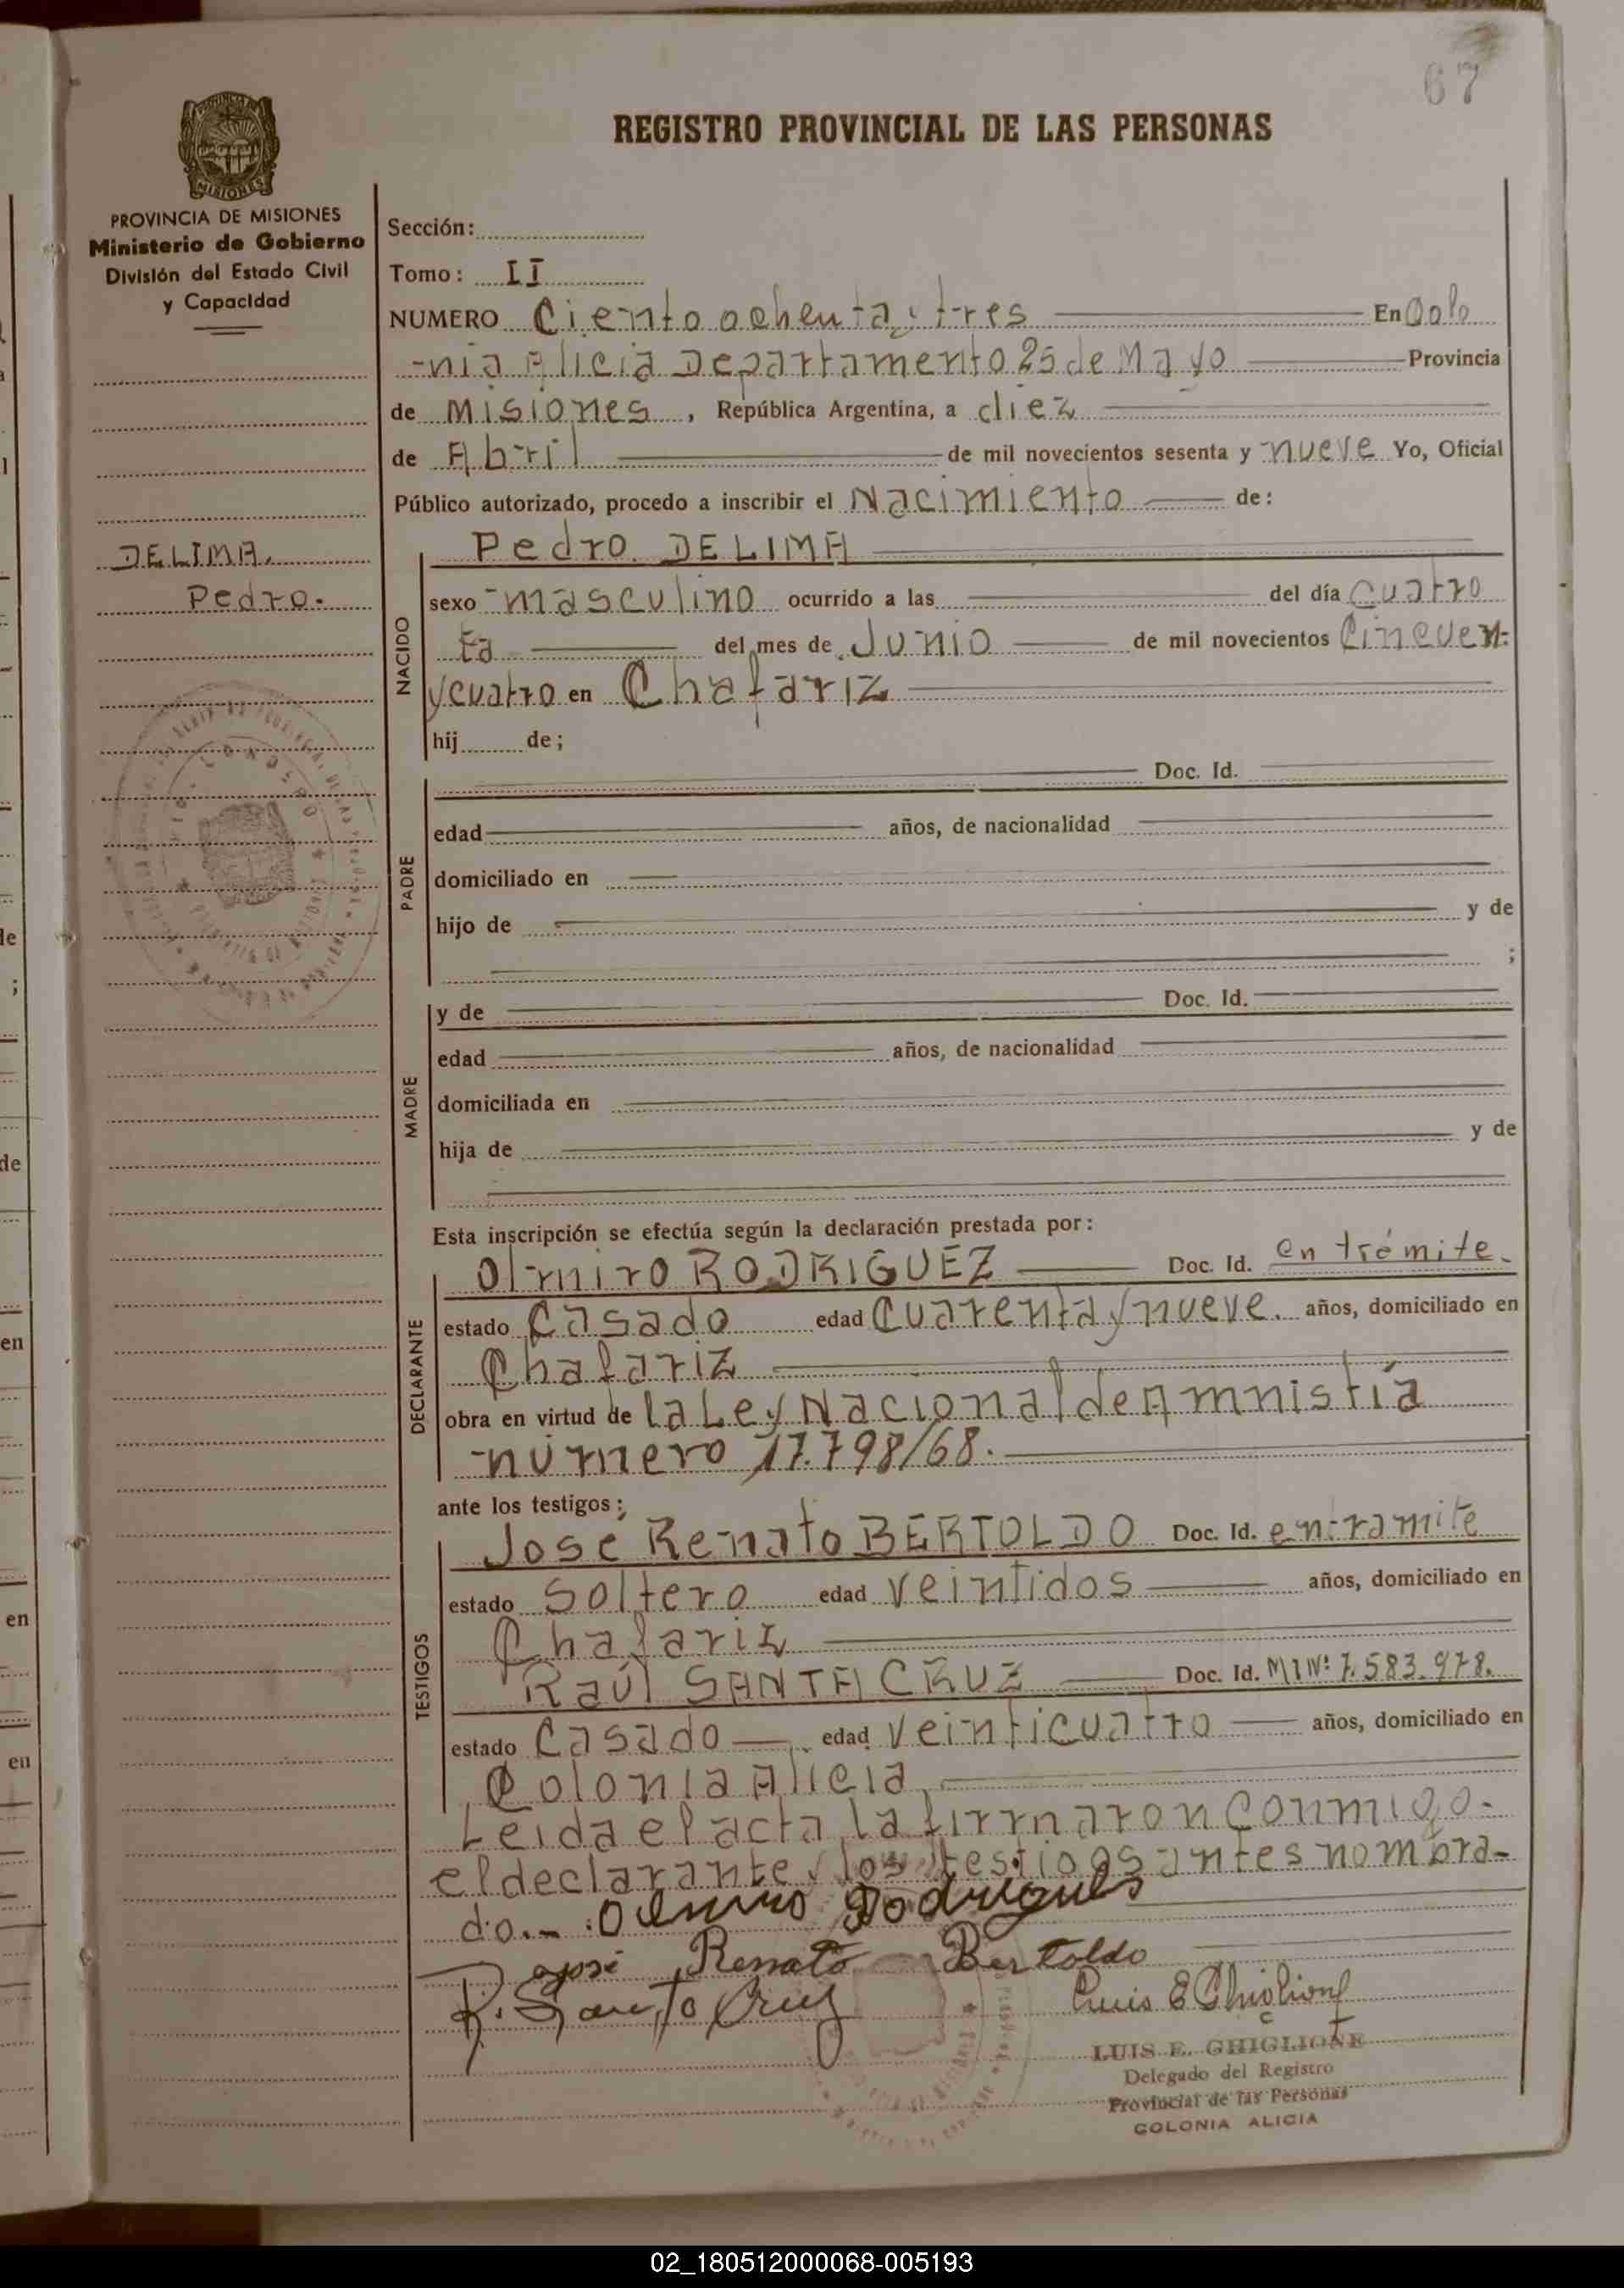 67
REGISTRO PROVINCIAL DE LAS PERSONAS
PROVINCIA DE MISIONES
Ministerio de Gobierno
División del Estado Civil
y Capacidad
DELIMA,
Pedro.
Sección:
Tomo: II
NUMERO Ciento ochenta y tres En Colo
nia Alicia Departamento 25 de Mayo Provincia
de Misiones, República Argentina, a diez
de Abril de mil novecientos sesenta y nueve Yo, Oficial
Público autorizado, procedo a inscribir el Nacimiento de:
NACIDO
Pedro DELIMA
sexo masculino ocurrido a las del día cuatro
ta del mes de Junio de mil novecientos Cincuen
y cuatro en Chafariz
hij de;
PADRE
Doc. Id.
edad años, de nacionalidad
domiciliado en
hijo de y de
;
MADRE
y de Doc. Id.
edad años, de nacionalidad
domiciliada en
hija de y de
Esta inscripción se efectúa según la declaración prestada por:
DECLARANTE
Olmiro RODRIGUEZ Doc. Id. en trámite.
estado Casado edad Cuarenta y nueve. años, domiciliado en
Chafariz
obra en virtud de la Ley Nacional de Amnistía
número 17.798/68.
ante los testigos;
TESTIGOS
José Renato BERTOLDO Doc. Id. en tramite
estado Soltero edad veintidos años, domiciliado en
Chafariz
Raúl SANTA CRUZ Doc. Id. MI Nº 7.583.978.
estado Casado edad veinticuatro años, domiciliado en
Colonia Alicia
Leida el acta, la firmaron conmigo
el declarante y los testigos antes nombra-
do.- Olmiro Rodrigues
José Renato Bertoldo
R. Santa Cruz Luis E Ghiglione
LUIS E. GHIGLIONE
Delegado del Registro
Provincial de las Personas
COLONIA ALICIA
02_180512000068-005193